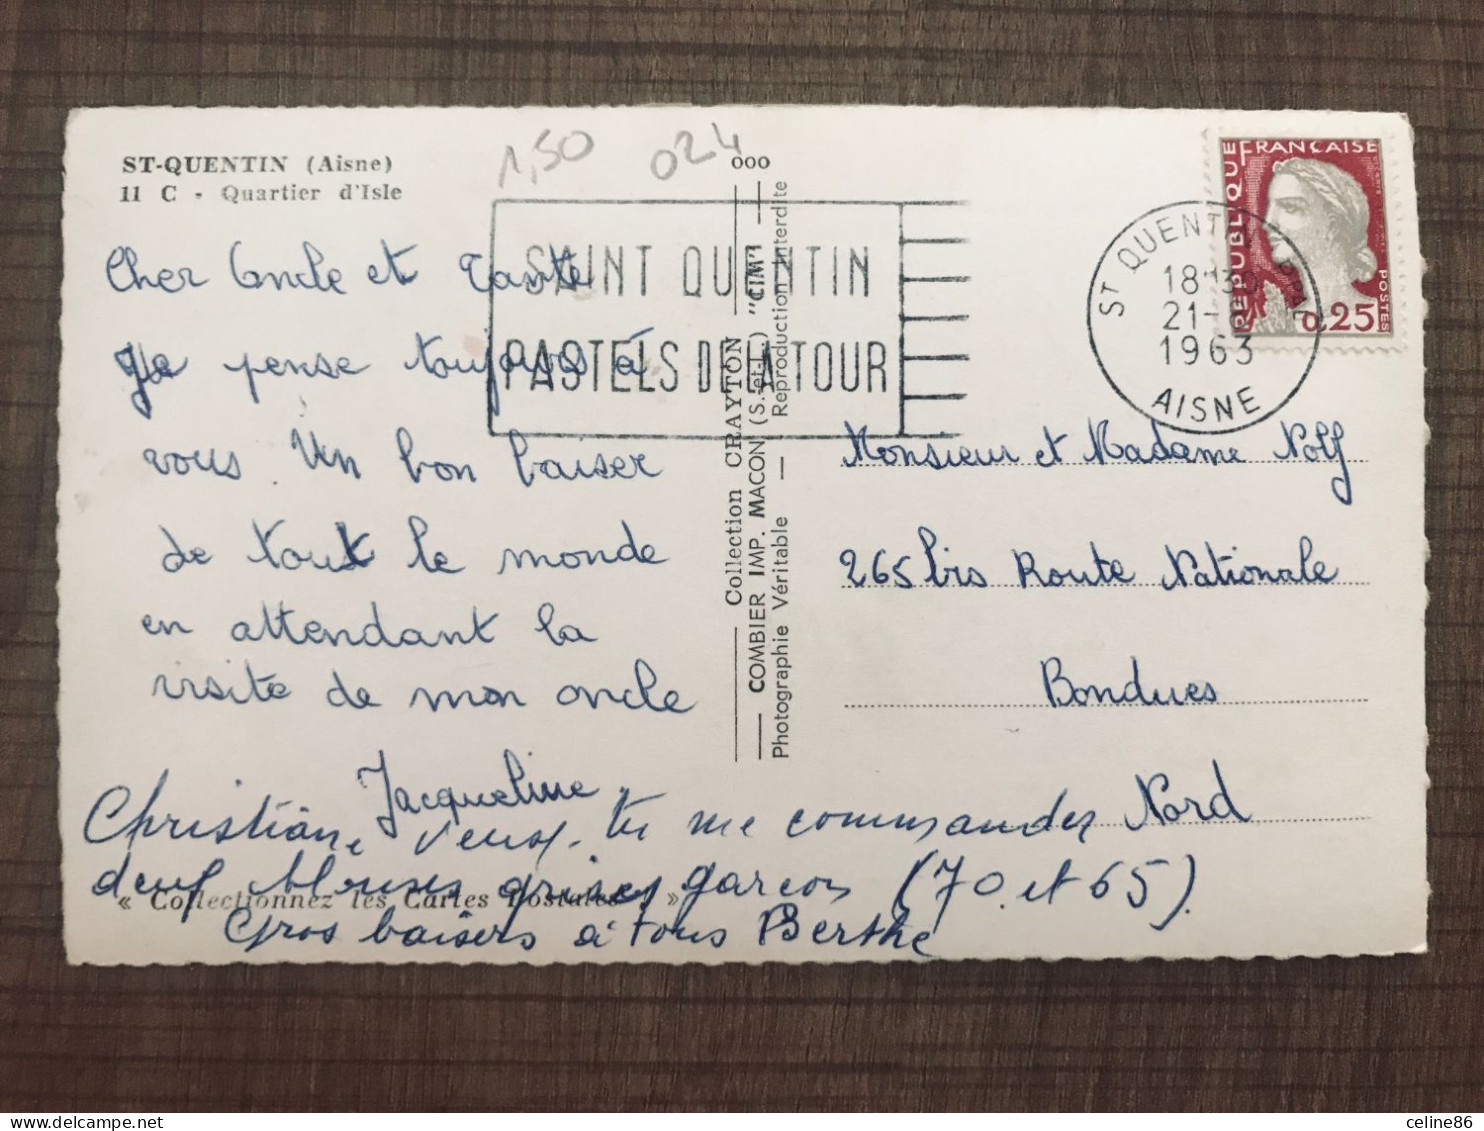 ST-QUENTIN (Aisne)
11 C - Quartier d'Isle
1,50
024
000
Cher Oncle et Tante
Je pense toujours à
vous. Un bon baiser
de tout le monde
en attendant la
visite de mon oncle
Jacqueline
Christian, veux-tu me commander
deux blouses grises garçon (70 et 65).
Gros baisers à tous Berthe
« Collectionnez les Cartes Postales »
SAINT QUENTIN
PASTELS DE LA TOUR
Collection CRAYTON
COMBIER IMP. MACON (S.-et-L.) "CIM"
Photographie Véritable — Reproduction Interdite
ST QUENTIN
18 H 30
21-
1963
AISNE
REPUBLIQUE FRANÇAISE
0,25
POSTES
Monsieur et Madame Nolf
265 bis Route Nationale
Bondues
Nord
celine86